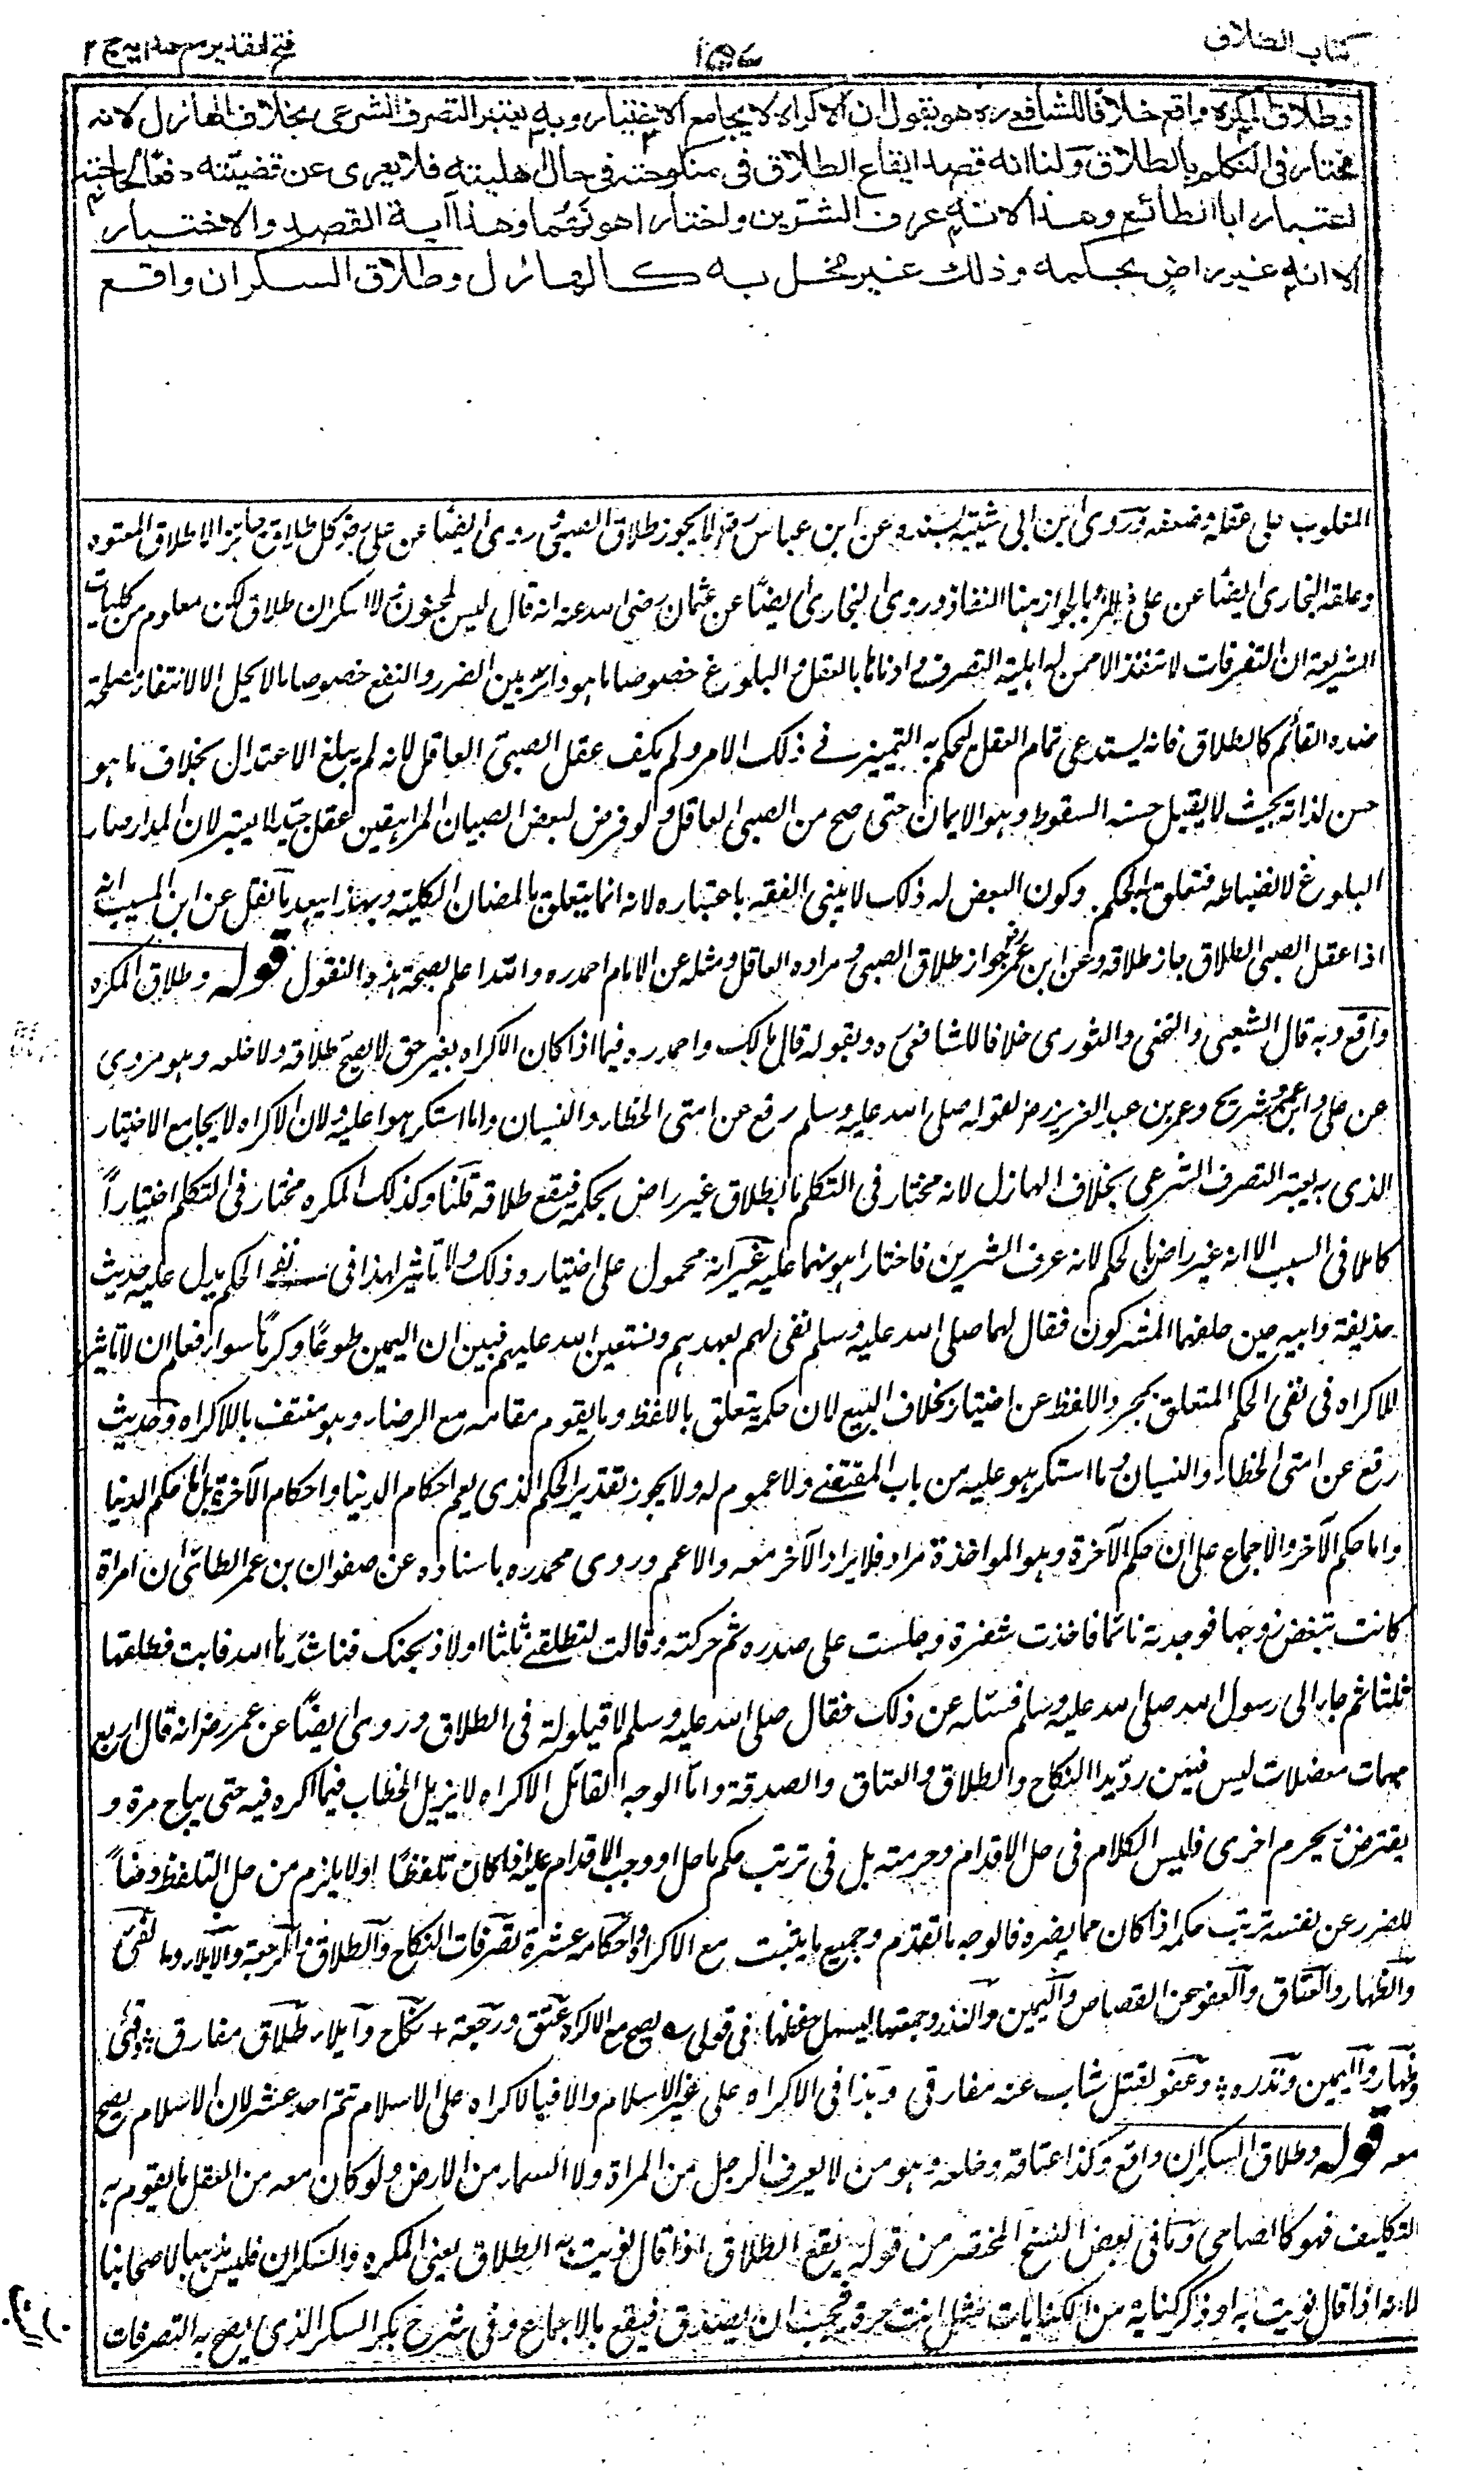 كتاب الطلاق
١٥٧
فتح القدير مع هدايه ج ٢
وطلاق المكره واقع خلافا للشافعي ره هو يقول ان الاكراه لا يجامع الاختيار وبه يعتبر التصرف الشرعي بخلاف الهازل لانه
مختار في التكلم بالطلاق ولنا انه قصد ايقاع الطلاق في منكوحته في حال اهليته فلا يعرى عن قضيته دفعا لحاجته
اعتبارا بالطائع وهذا لانه عرف الشرين واختار اهونهما وهذا آية القصد والاختيار
الا انه غير راض بحكمه وذلك غير مخل به كالهازل وطلاق السكران واقع
المغلوب على عقله وضعفه وروى ابن ابى شيبة بسنده عن ابن عباس رض لا يجوز طلاق الصبى وروى ايضا عن على رض كل طلاق جائز الا طلاق المعتوه
وعلقه البخارى ايضا عن على رض والمراد بالجواز هنا النفاذ وروى البخارى ايضا عن عثمان رضى الله عنه انه قال ليس لمجنون ولا لسكران طلاق لكن معلوم من كليات
الشريعة ان التصرفات لا تنفذ الا ممن له اهلية التصرف وادناها بالعقل والبلوغ خصوصا ما هو دائر بين الضرر والنفع خصوصا ما لا يحل الا لانتفاء مصلحة
ضده القائم كالطلاق فانه يستدعى تمام العقل ليحكم به التمييز فى ذلك الامر ولم يكف عقل الصبى العاقل لانه لم يبلغ الاعتدال بخلاف ما هو
حسن لذاته بحيث لا يقبل حسنه السقوط وهو الايمان حتى صح من الصبى العاقل ولو فرض لبعض الصبيان المراهقين عقل جيد لا يعتبر لان المدار صار
البلوغ لانضباطه فتعلق به الحكم وكون البعض له ذلك لا يبنى الفقه باعتباره لانه انما يتعلق بالمضان الكلية وبهذا يبعد ما نقل عن ابن المسيب انه
اذا عقل الصبى الطلاق جاز طلاقه وعن ابن عمر رض جواز طلاق الصبى ومراده العاقل ومثله عن الامام احمد ره والله اعلم بصحة هذه النقول قوله وطلاق المكره
واقع وبه قال الشعبى والنخعى والثورى خلافا للشافعى ره وبقوله قال مالك واحمد ره فيما اذا كان الاكراه بغير حق لا يصح طلاقه ولا خلعه وهو مروى
عن على وابن عمر وشريح وعمر بن عبد العزيز رض لقوله صلى الله عليه وسلم رفع عن امتى الخطاء والنسيان وما استكرهوا عليه ولان الاكراه لا يجامع الاختيار
الذى به يعتبر التصرف الشرعى بخلاف الهازل لانه مختار فى التكلم بالطلاق غير راض بحكمه فيقع طلاقه قلنا وكذلك المكره مختار فى التكلم اختيارا
كاملا فى السبب الا انه غير راض بالحكم لانه عرف الشرين فاختار اهونهما عليه غير انه محمول على اختياره ذلك ولا تاثير لهذا فى نفى الحكم يدل عليه حديث
حذيفة وابيه حين حلفهما المشركون فقال لهما صلى الله عليه وسلم نفى لهم بعهدهم ونستعين الله عليهم فبين ان اليمين طوعا وكرها سواء فعلم ان لا تاثير
للاكراه فى نفى الحكم المتعلق بمجرد اللفظ عن اختيار بخلاف البيع لان حكمه يتعلق باللفظ وما يقوم مقامه مع الرضاء وهو منتف بالاكراه وحديث
رفع عن امتى الخطاء والنسيان وما استكرهوا عليه من باب المقتضى ولا عموم له ولا يجوز تقدير الحكم الذى يعم احكام الدنيا واحكام الآخرة بل اما حكم الدنيا
واما حكم الآخرة والاجماع على ان حكم الآخرة وهو المواخذة مراد فلا يراد الآخر معه والا عمم وروى محمد ره باسناده عن صفوان بن عمر الطائى ان امراة
كانت تبغض زوجها فوجدته نائما فاخذت شفرة وجلست على صدره ثم حركته وقالت لتطلقنى ثلثا اولاذبحنك فناشدها الله فابت فطلقها
ثلثا ثم جاء الى رسول الله صلى الله عليه وسلم فساله عن ذلك فقال صلى الله عليه وسلم لا قيلولة فى الطلاق وروى ايضا عن عمر رض انه قال اربع
مبهمات معضلات ليس فيهن رديدا النكاح والطلاق والعتاق والصدقة واما الوجه القائل الاكراه لا يزيل الخطاب فيما اكره فيه حتى يباح مرة و
يفترض ويحرم اخرى فليس الكلام فى حل الاقدام وحرمته بل فى ترتب حكم ما حل او وجب الاقدام عليه اذا كان تلفظا اولا يلزم من حل التلفظ دفعا
للضرر عن نفسه ترتب حكمه اذا كان مما يضره فالوجه ما تقدم وجميع ما يثبت مع الاكراه احكامه عشرة تصرفات النكاح والطلاق والرجعة والايلاء والفىء
والظهار والعتاق والعفو عن القصاص واليمين والنذر وجمعتها ليسهل حفظها فى قولى ؎ يصح مع الاكراه عتق ورجعة + نكاح وايلاء طلاق مفارق ؞ وفىء
ظهار واليمين ونذره ؞ وعفو لقتل شاب عنه مفارقى وهذا فى الاكراه على غير الاسلام والا فبالاكراه على الاسلام تتم احد عشر لان الاسلام يصح
معه قوله وطلاق السكران واقع وكذا اعتاقه وخلعه وهو من لا يعرف الرجل من المراة ولا السماء من الارض ولو كان معه من العقل ما يقوم به
التكليف فهو كالصاحى وما فى بعض النسخ المختصر من قوله يقع الطلاق اذا قال نويت به الطلاق يعنى المكره والسكران فليس مذهبا لاصحابنا
لانه اذا قال نويت به او ذكر كناية من الكنايات مثل انت حرة فيجب ان يصدق فيقع بالاجماع وفى شرح بكر السكر الذى يصح به التصرفات